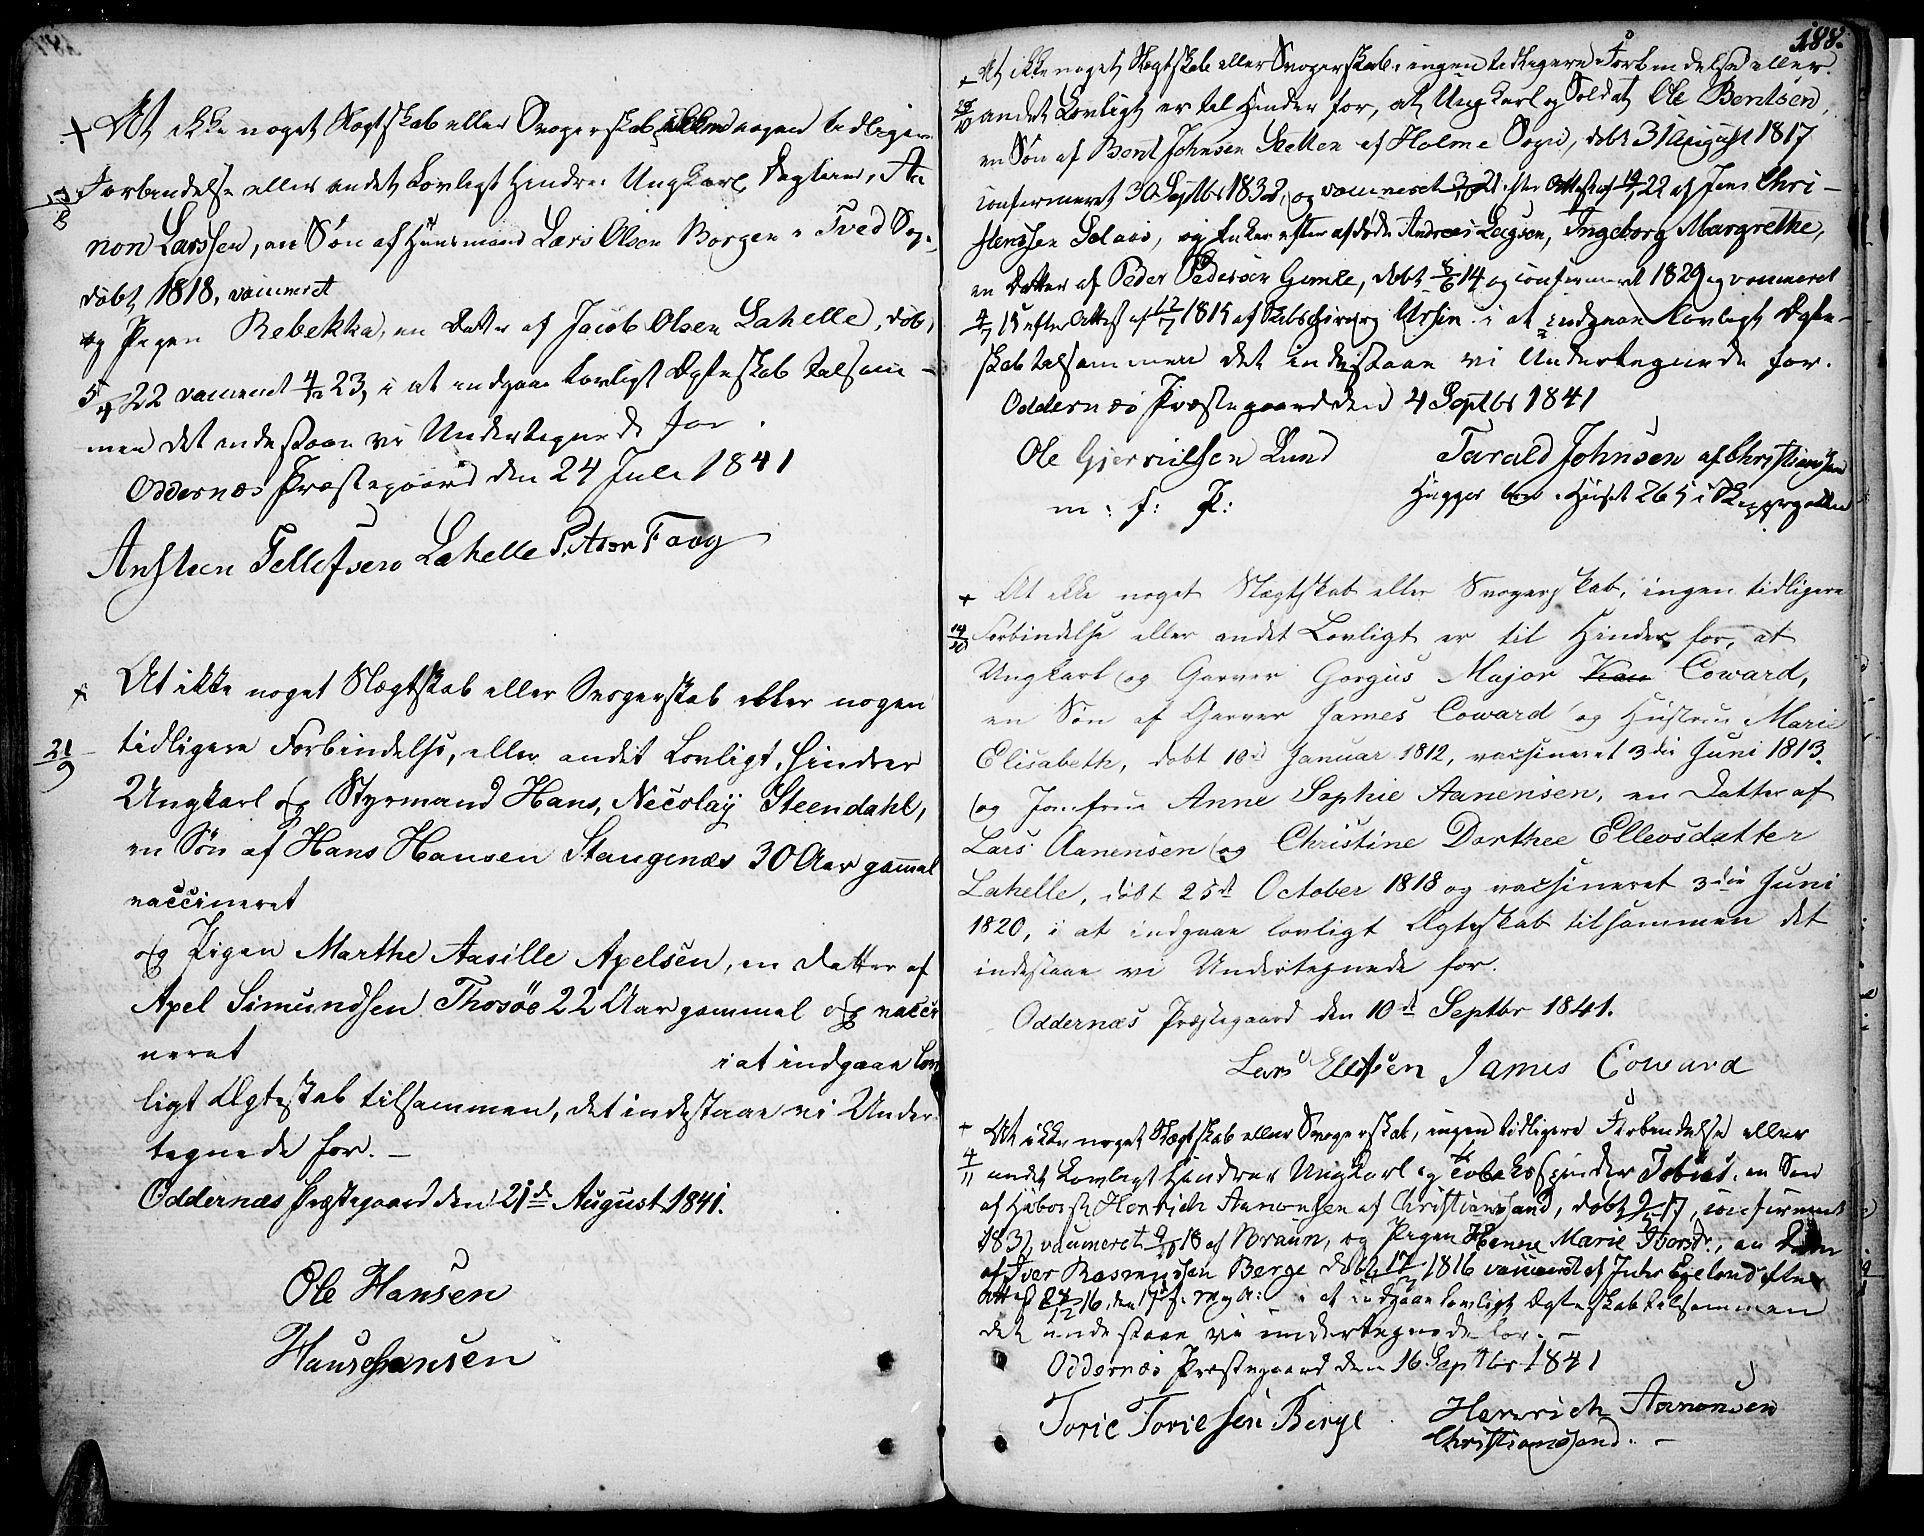 + At ikke noget Slægtskab eller Svogerskab eller nogen tidligere
13/8 Forbindelse eller andet Lovligt Hindrer Ungkarl, Aa
non Larssen, en Søn af Huusmand Lars Olsen Borgen i Tved Sog.
døbt 1818, vaccineret
og Pigen Rebekka, en Datter af Jacob Olsen Lahelle, døbt
5/4 22 vaccineret 23, i at indgaae lovligt Ægteskab tilsam-
men det indestaae vi Undertegnede for.
Oddernæs Præstegaard den 24 Juli 1841
Ansteen Tellefsen Lahelle
+ At ikke noget Slægtskab eller Svogerskab eller nogen
21/9 tidligere Forbindelse, eller andet Lovligt, hindrer
Ungkarl og Styrmand Hans, Nicolaÿ Steendahl,
en Søn af Hans Hansen Stangenæs 30 Aar gammel
vaccineret
og Pigen Marthe Aasille Apelsen, en Datter af
Apel Simundsen Thosøe 22 Aar gammel og vacci
neret i at indgaae lov
ligt Ægteskab tilsammen, det indestaae vi Under-
tegnede for. –
Oddernæs Præstegaard den 21de August 1841.
Ole Hansen
Hans Hansen
188.
+ At ikke noget Slægtskab eller Svogerskab, ingen tidligere Forbindelse eller
andet Lovligt er til Hinder for, at Ungkarl og Soldat Ole Bentsen,
en Søn af Bent Johnsen Sletten af Holme Sogn, døbt 31 August 1817
confirmeret 30 Septbr 1832, og vaccineret 21 efter Attest af 22 af Jens Chri-
stenssen og Enken efter afdøde Andreas Ingeborg Margrethe,
en Datter af Peder Pedersen Gimle, døbt 14 og confirmeret 1829 og vaccineret
4/7 15 efter Attest af 12/7 1815 af i at indgaae lovligt Ægte-
skab tilsammen det indestaae vi Undertegnede for.
Oddernæs Præstegaard den 4 Septbr 1841
Ole Gjeruilsen Lund Tarald Johnsen af Christiansand
m: f: P: Huset 265 i
+ At ikke noget Slægtskab eller Svogerskab, ingen tidligere
14/10 Forbindelse eller andet Lovligt er til Hinder for, at
Ungkarl og Garver Gorgius Major Coward,
en Søn af Garver James Coward og Hustrue Marie
Elisabeth, døbt 10de Januar 1812, vacsineret 3die Juni 1813.
og Jomfrue Anne Sophie Aanensen, en Datter af
Lars Aanensen og Christine Dorthee Ellevsdatter
Lahelle, døbt 25de October 1818 og vacsineret 3die Juni
1820, i at indgaae lovligt Ægteskab tilsammen det
indestaae vi Undertegnede for.
Oddernæs Præstegaard den 10de Septbr 1841.
Lars Ellefsen James Coward
+ At ikke noget Slægtskab eller Svogerskab, ingen tidligere Forbindelse eller
4/11 andet Lovligt Hindrer Ungkarl og Tobakspinder Tobias, en Søn
af Henrich Aanonsen af Christiansand, døbt confirmeret
1831, vaccineret 18 af Braun, og Pigen Hanne Marie Iversdr., en Datter
af Iver Rasmussen Berge døbt 1816 vaccineret af efter
Attest 16, i at indgaae lovligt Ægteskab tilsammen
det indestaae vi undertegnede for. –
Oddernæs Præstegaard den 16 Septbr 1841
Torie Toriesen Berge Henrich Aanonsen
Christiansand. –